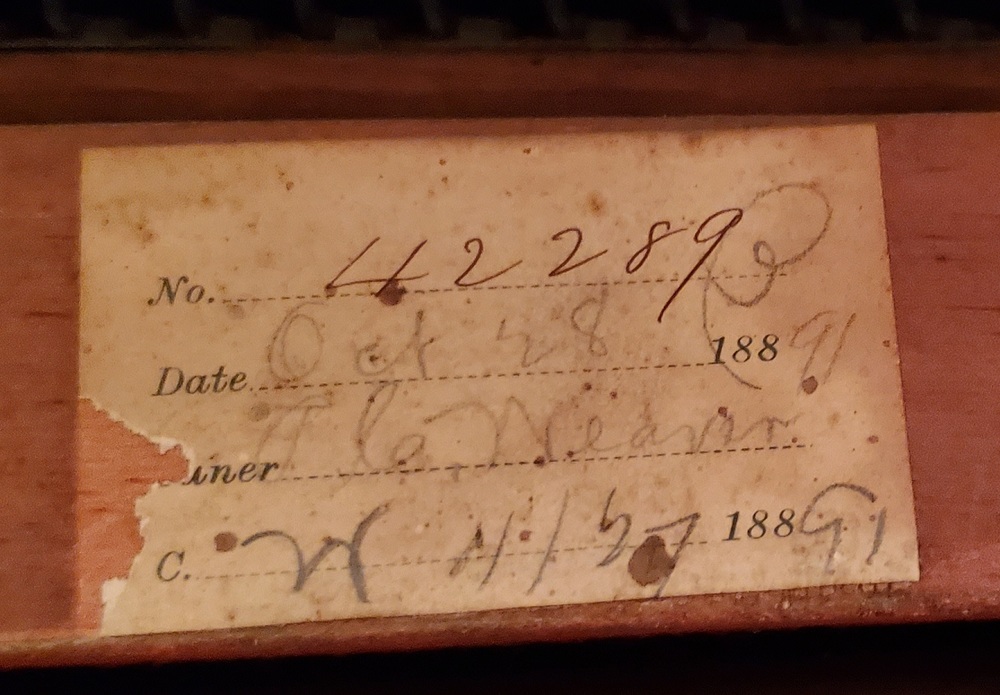 No. 42289
Date Oct 28 188 91
uner Weaver
C. 11/27 188 91